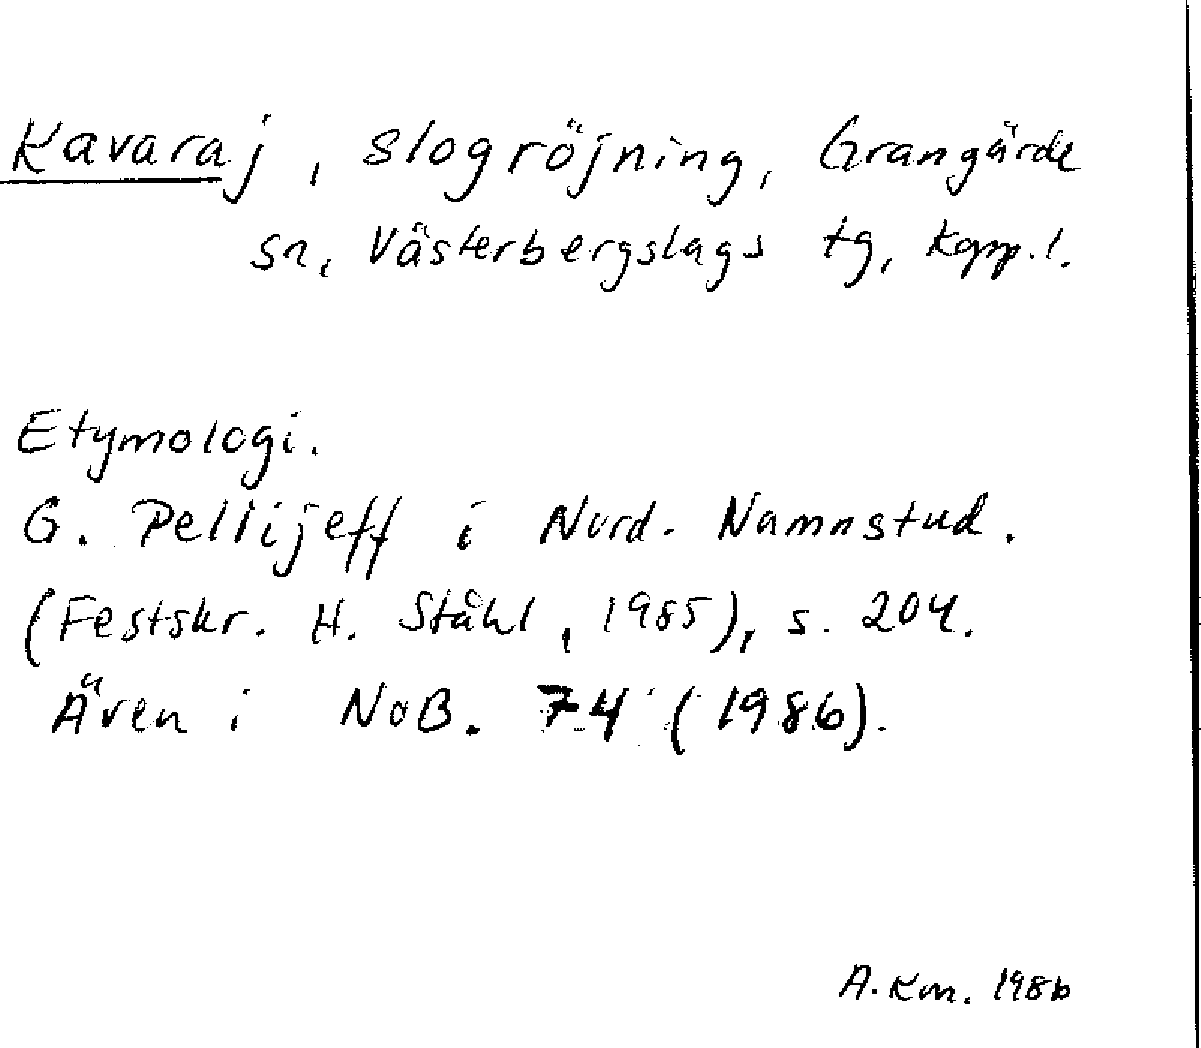 Kavaraj, slogröjning, Grangärde
sn, Västerbergslags tg, Kopp.l.
Etymologi.
G. Pellijeff i Nord. Namnstud.
(Festskr. H. Ståhl, 1985), s. 204.
Även i NoB. 74 (1986).
A. Km. 1986